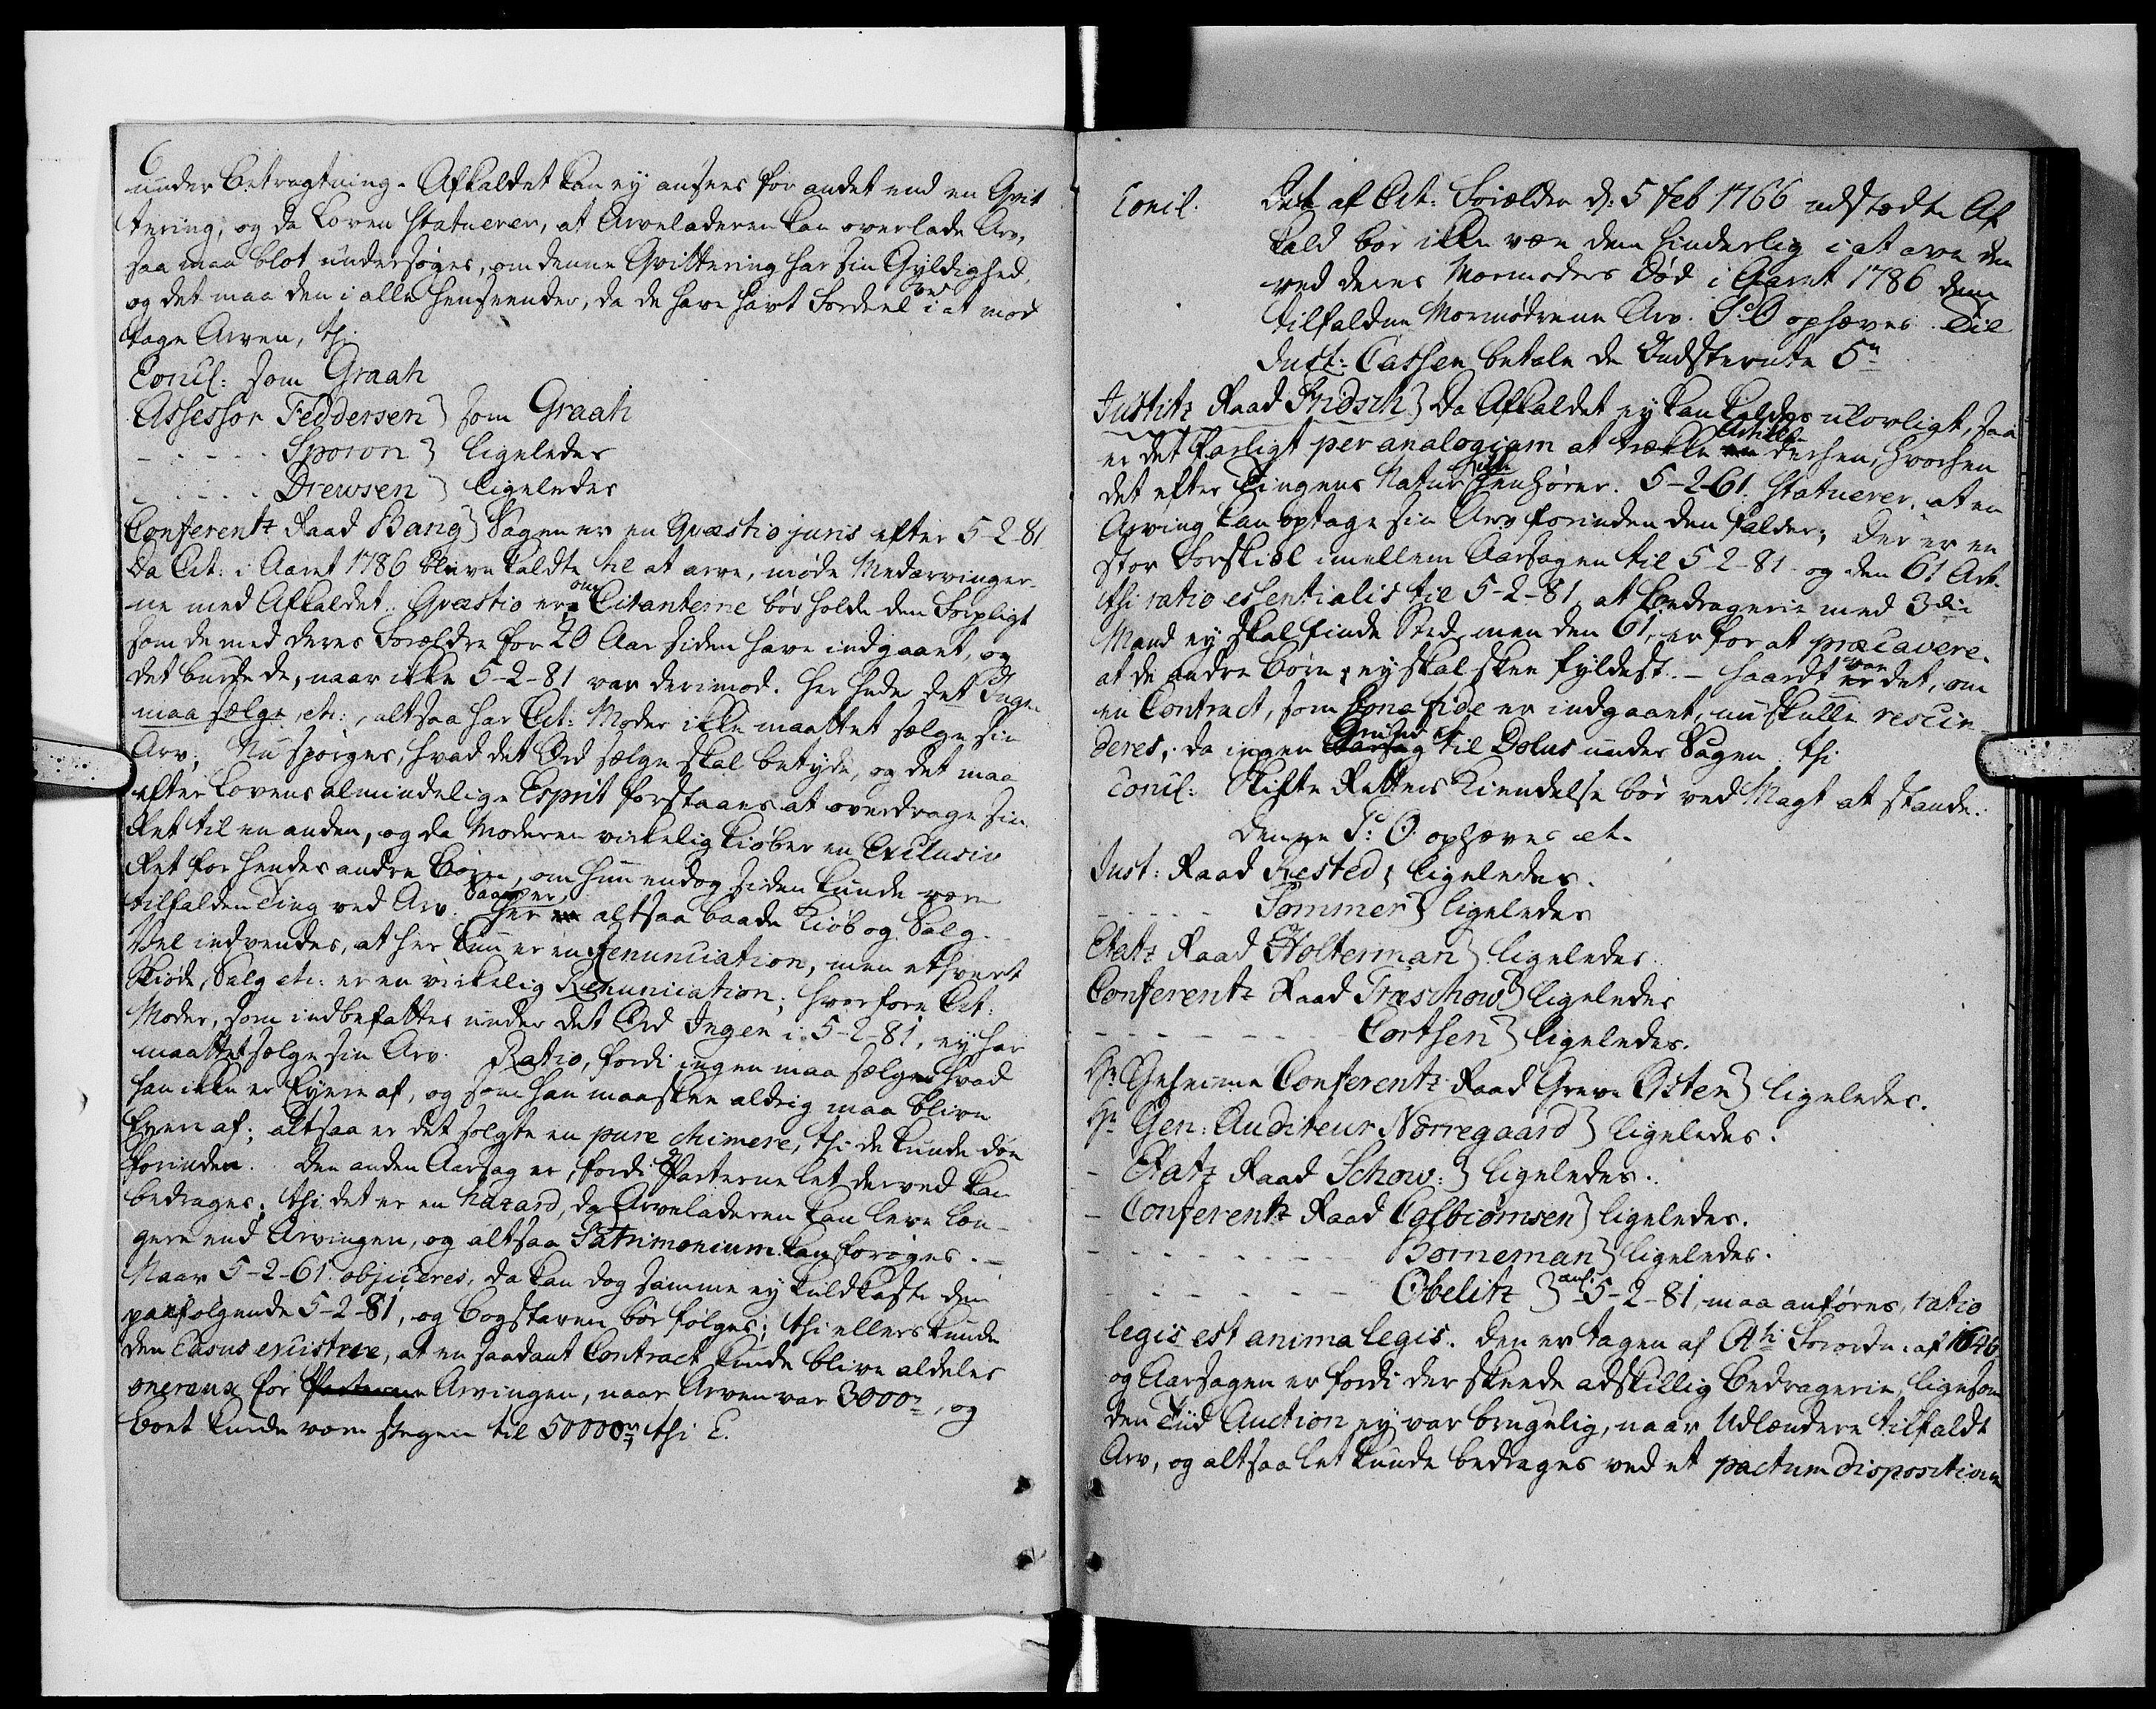 6
under Betragtning. Afkaldet kan ey ansees for andet end en Qvit
tering, og da Loven statuerer, at Arveladeren kan overlade Arv,
saa maa blot undersøges, om denne Qvittering har sin Gyldighed,
og det maa den i alle Henseender, da de have havt Fordeel ved i at mod
tage Arven, thi
Concl: som Graah
Assessor Feddersen} som Graah
- - - - - Sporon} ligeledes
- - - - - Drewsen} ligeledes
Conferentz Raad Bang} Sagen er en Qvæstio juris efter 5-2-81.
Da Cit: i Aaret 1786 bleve kaldte til at arve, møde Medarvinger-
ne med Afkaldet. Qvæstio er om Citanterne bør holde den Forpligt
som de med deres Forældre for 20 Aar siden have indgaaet, og
det burde de, naar ikke 5-2-81 var derimod. Her heder det Ingen
maa sælge etc:, altsaa har Cit: Moder ikke maattet sælge sin
Arv; Nu spørges, hvad det Ord sælge skal betyde, og det maa
efter Lovens almindelige Esprit forstaaes at overdrage sin
Ret til en anden, og da Moderen virkelig kiøber en Exclusiv
Ret for hendes andre Børn, om hun endog siden kunde være
tilfalden Ting ved Arv. Saa er her altsaa baade Kiøb og Salg.
Vel indvendes, at her kun er en Renunciation, men ethvert
Skiøde, Salg etc: er en virkelig Renunciation; hvorfore Cit:
Moder, som indbefattes under det Ord Ingen i 5-2-81, ey har
maattet sælge sin Arv. Ratio, fordi ingen maa sælge hvad
han ikke er Eyere af, og som han maaskee aldrig maa blive
Eyere af; altsaa er det solgte en pure chimere, thi de kunde døe
forinden. Den anden Aarsag er, fordi Parterne let derved kan
bedrages; thi det er en hazard, da Arveladeren kan leve læn-
gere end Arvingen, og altsaa Patrimonium kan forøges. -
Naar 5-2-61 objiceres, da kan dog samme ey kuldkaste den
paafølgende 5-2-81, og Bogstaven bør følges; thi ellers kunde
den Casus existere, at en saadant Contract kunde blive aldeles
onereux for Parterne Arvingen, naar Arven var 3000 r, og
Boet kunde være stegen til 50000 r thi C.
Concl. Det af Cit: Forældre d: 5 Feb 1766 udstædte Af
kald bør ikke være dem hinderlig i at arve den
ved deres Mormoders Død i Aaret 1786 dem
tilfaldne Mormødrene Arv. P: O ophæves. Til
Just: Cassen betale de Indstevnte 5 r
Justitz Raad Fridsch} Da Afkaldet ey kan kaldes ulovligt, saa
er det farligt per analogiam at trække en Article derhen, hvorhen
det efter Tingens Natur ikke henhører. 5-2-61. statuerer, at en
Arving kan optage sin Arv forinden den falder; Der er en
stor Forskiel imellem Aarsagen til 5-2-81. og den 61 Art.
thi ratio essentialis til 5-2-81, at Bedragerie med 3die
Mand ey skal finde Sted, men den 61, er for at præcavere
at de andre Børn ey skal skee fyldest. - Haardt var det, om
en Contract, som bona fide er indgaaet, nu skulle rescin-
deres, da ingen Grund er til Dolus under Sagen thi
Concl: Skifte Rettens Kiendelse bør ved Magt at stande.
Denne P: O. ophæves etc.
Just: Raad Frested} ligeledes.
- - - - - Sommer} ligeledes
Etatz Raad Holterman} ligeledes.
Conferentz Raad Træschow} ligeledes
- - - - - - Cortsen} ligeledes.
Hr Geheime Conferentz Raad Greve Osten} ligeledes.
Hr Gen: Auditeur Nørregaard} ligeledes.
- Etatz Raad Schow:} ligeledes.
- Conferentz Raad Colbiørnsen} ligeledes.
- - - - - - Borneman} ligeledes.
- - - - - - Obelitz} anf: 5-2-81, maa anføres, ratio
legis est anima legis. Den er tagen af Forordn: af 1646
og Aarsagen er fordi der skeede adskillig Bedragerie, ligesom
den Tiid Auction ey var brugelig, naar Udlændere tilfaldt
Arv, og altsaa let kunde bedrages ved et pactum dispositionis